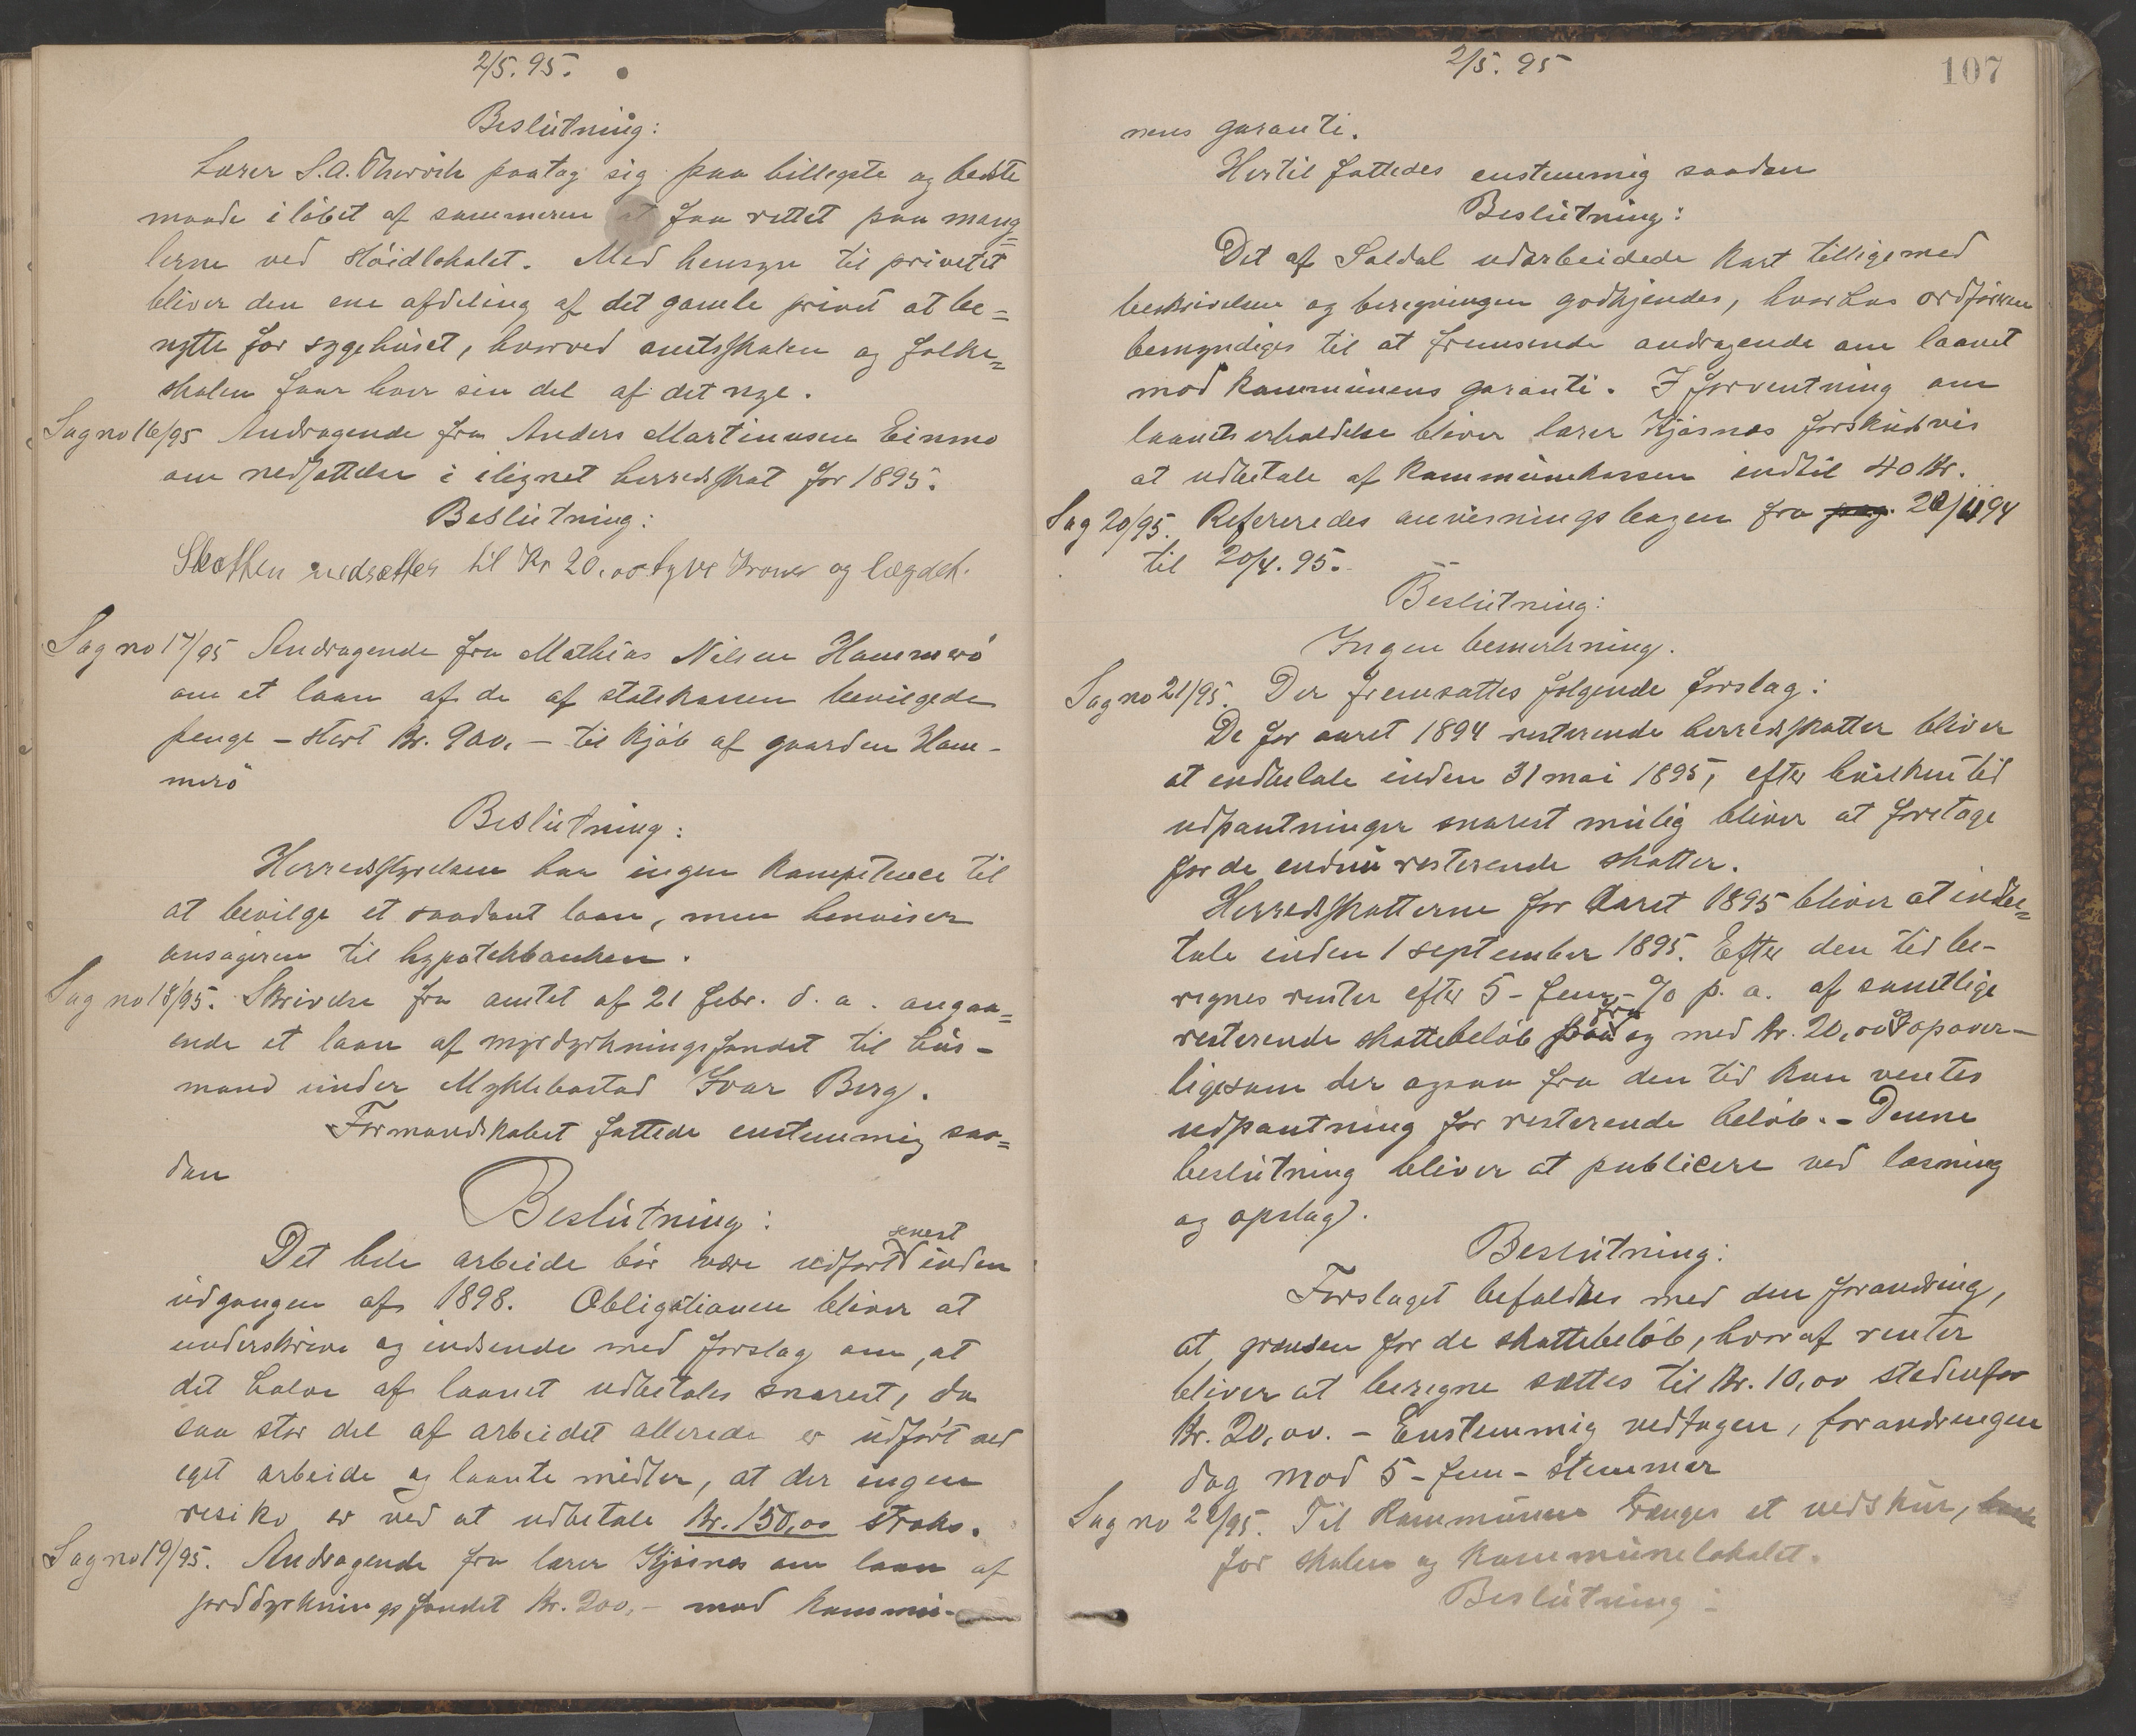 2/5. 95.
Beslutning:
Lærer S.A. paatog sig paa billigste og bedste
maade i løbet af sommeren at faa rettet paa mang=
lerne ved sløidlokalet. Med hensyn til privetet
bliver den ene afdeling af det gamle privet at be=
nytte for sygehuset, hvorved amtsskolen og folke=
skolen faar hver sin del af det nye.
Sag no 16/95 Andragende fra Anders Martinusen Einmo
om nedsættelse i ilignet herredsskat for 1895.
Beslutning:
Skatten nedsættes til Kr 20,00 tyve Kroner og lægdet.
Sag no 17/95 Andragende fra Mathias Nilsen Hammerö
om et laan af de af statskassen bevilgede
penge – stort Kr. 900, – til kjøb af gaarden Ham-
merö
Beslutning:
Herredsstyrelsen har ingen kompetence til
at bevilge et saadant laan, men henviser
ansøgeren til hypotekbanken.
Sag no 18/95. Skrivelse fra amtet af 21 febr. d. a. angaa=
ende et laan af myrdyrkningsfondet til hus-
mand under Myklebostad Ivar Berg.
Formandskabet fattede enstemmig saa=
dan
Beslutning:
senest
Det hele arbeide bör være udført inden
udgangen af 1898. Obligationen bliver at
underskrive og indsende med forslag om, at
det halve af laanet udbetales snarest, da
saa stor del af arbeidet allerede er udført ved
eget arbeide og laante midler, at der ingen
resiko er ved at udbetale Kr. 150,00 straks.
Sag no 19/95. Andragende fra lærer Kjösnes om laan af
jorddyrkningsfondet Kr. 200,– mod kommu-
2/5. 95
107
nens garanti.
Hertil fattedes enstemmig saadan
Beslutning:
Det af Saldal udarbeidede kart tilligemed
beskrivelsen og beregningen godkjendes, hvorhos ordføreren
bemyndiges til at fremsende andragende om laanet
mod kommunens garanti. I forventning om
laanets erholdelse bliver lærer Kjösnes forskudsvis
at udbetale af kommunekassen indtil 40 Kr.
Sag 20/95. Refereredes anvisningsbogen fra pag. 20/11 94
til 20/4. 95.
Beslutning:
Ingen bemerkning.
Sag no 21/95. Der fremsattes følgende forslag:
De for aaret 1894 resterende herredsskatter bliver
at indbetale inden 31 mai 1895, efter hvilken tid
udpantninger snarest mulig bliver at foretage
for de endnu resterende skatter.
Herredsskatterne for Aaret 1895 bliver at indbe=
tale inden 1 september 1895. Efter den tid be-
regnes renter efter 5 – fem – % p. a. af samtlige
fra
resterende skattebeløb og med Kr. 20,00 opover –
ligesom der ogsaa fra den tid kan ventes
udpantning for resterende beløb. – Denne
beslutning bliver at publicere ved læsning
og opslag.
Beslutning:
Forslaget befaldtes med den forandring,
at grænsen for de skattebeløb, hvoraf renter
bliver at beregne sættes til Kr. 10,00 stedenfor
Kr. 20,00. – Enstemmig vedtagen, forandringen
dog mod 5 – fem – stemmer
Sag no 22/95. Til kommunen trænges et vedskur,
for skolen og kommunelokalet.
Beslutning: